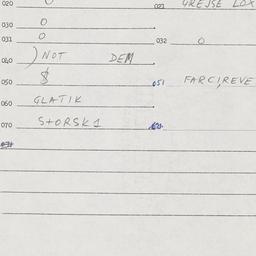 020 021 GREJSE LOX
030 0
031 0 032 0
040 ) NOT DEM
050 $ 051 FARCI,REVE
060 GLATIK
070 STORSK1